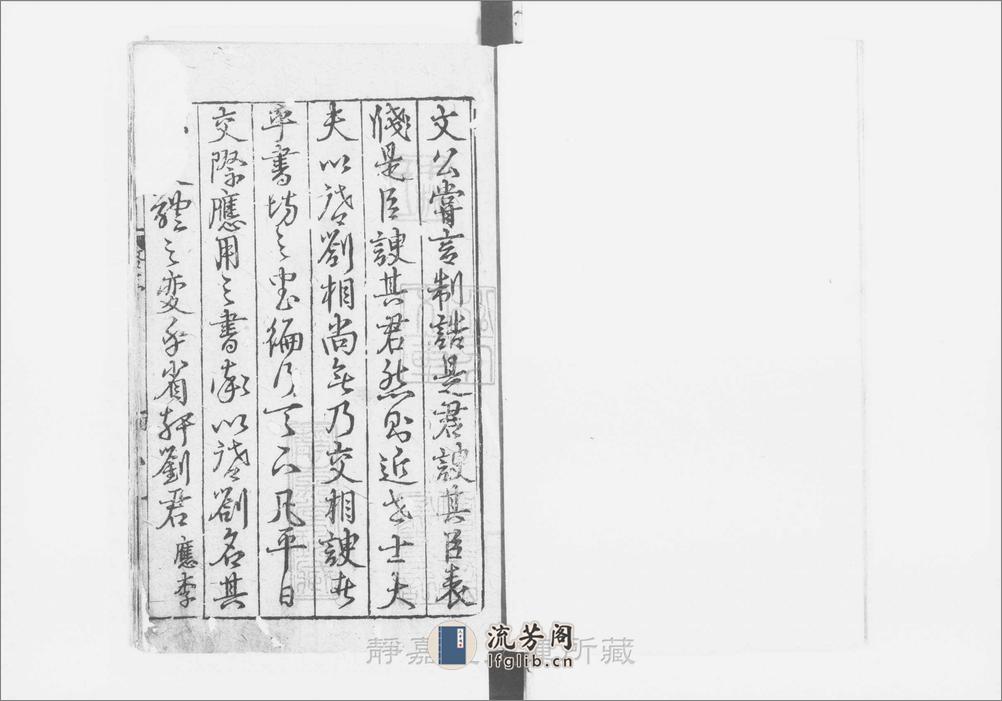 文公嘗言制誥是君諛其臣表
牋是臣諛其君然則近世士大
夫以啓劄相尚無乃交相諛者
乎書坊之書徧行天下凡平日
交際應用之書率以啓劄名其
體之變乎省軒劉君應李
靜嘉 所藏
流芳阁
lfglib.cn